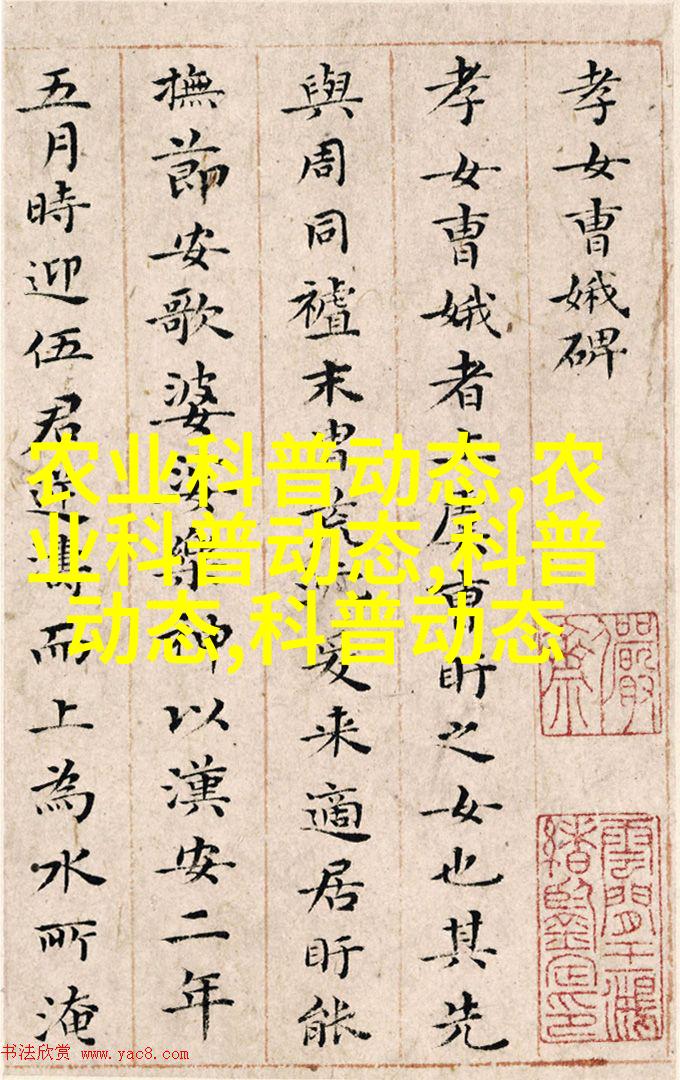 孝女曹娥碑
孝女曹娥者上虞曹盱之女也其先
與周同末胄荒流爰来適居盱能
撫節安歌婆娑樂神以漢安二年
五月時迎伍君逆濤而上為水所淹
农业科普动态,农
业科普动态,科普
动态,科普动态
雲間王鴻
緒鑒定印
书法欣赏 www.yac8.com